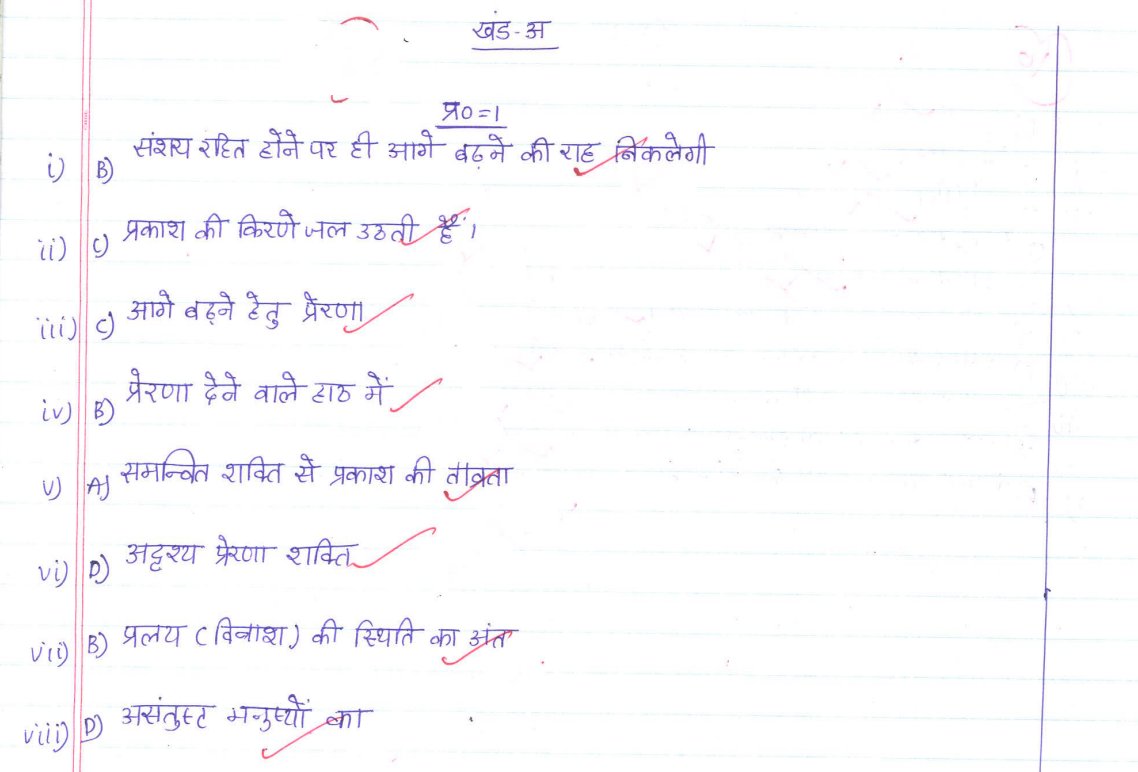 खंड-अ
प्र०=1
i) B) संशय रहित होने पर ही आगे बढ़ने की राह निकलेगी
ii) C) प्रकाश की किरणे जल उठती हैं।
iii) C) आगे बढ़ने हेतु प्रेरणा
iv) B) प्रेरणा देने वाले हाठ में
v) A) समन्वित शक्ति से प्रकाश की तीव्रता
vi) D) अदृश्य प्रेरणा शक्ति
vii) B) प्रलय (विनाश) की स्थिति का अंत
viii) D) असंतुस्ट मनुष्यों का